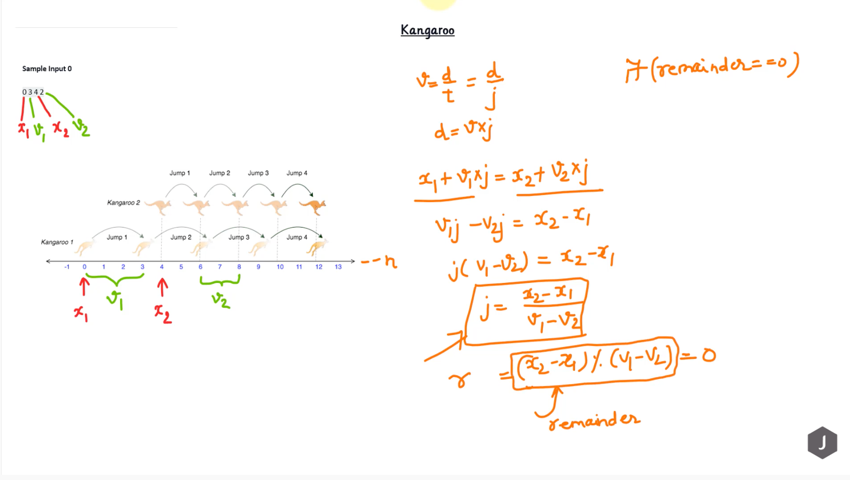 Kangaroo
Sample Input 0
0 3 4 2
x1 v1 x2 v2
Jump 1 Jump 2 Jump 3 Jump 4
Kangaroo 2
Kangaroo 1
Jump 1 Jump 2 Jump 3 Jump 4
-1 0 1 2 3 4 5 6 7 8 9 10 11 12 13 --n
v1 v2
x1 x2
v = d/t = d/j
d = v×j
x1 + v1×j = x2 + v2×j
v1j - v2j = x2 - x1
j(v1 - v2) = x2 - x1
j = x2 - x1 / v1 - v2
r = (x2 - x1) % (v1 - v2) = 0
remainder
if (remainder == 0)
J